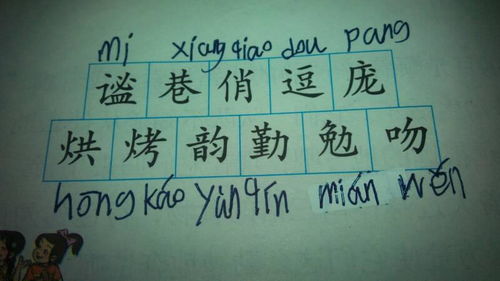 mì xiàng qiào dòu pang
谧巷俏逗庞
烘烤韵勤勉吻
hōng kǎo yùn qín miǎn wěn